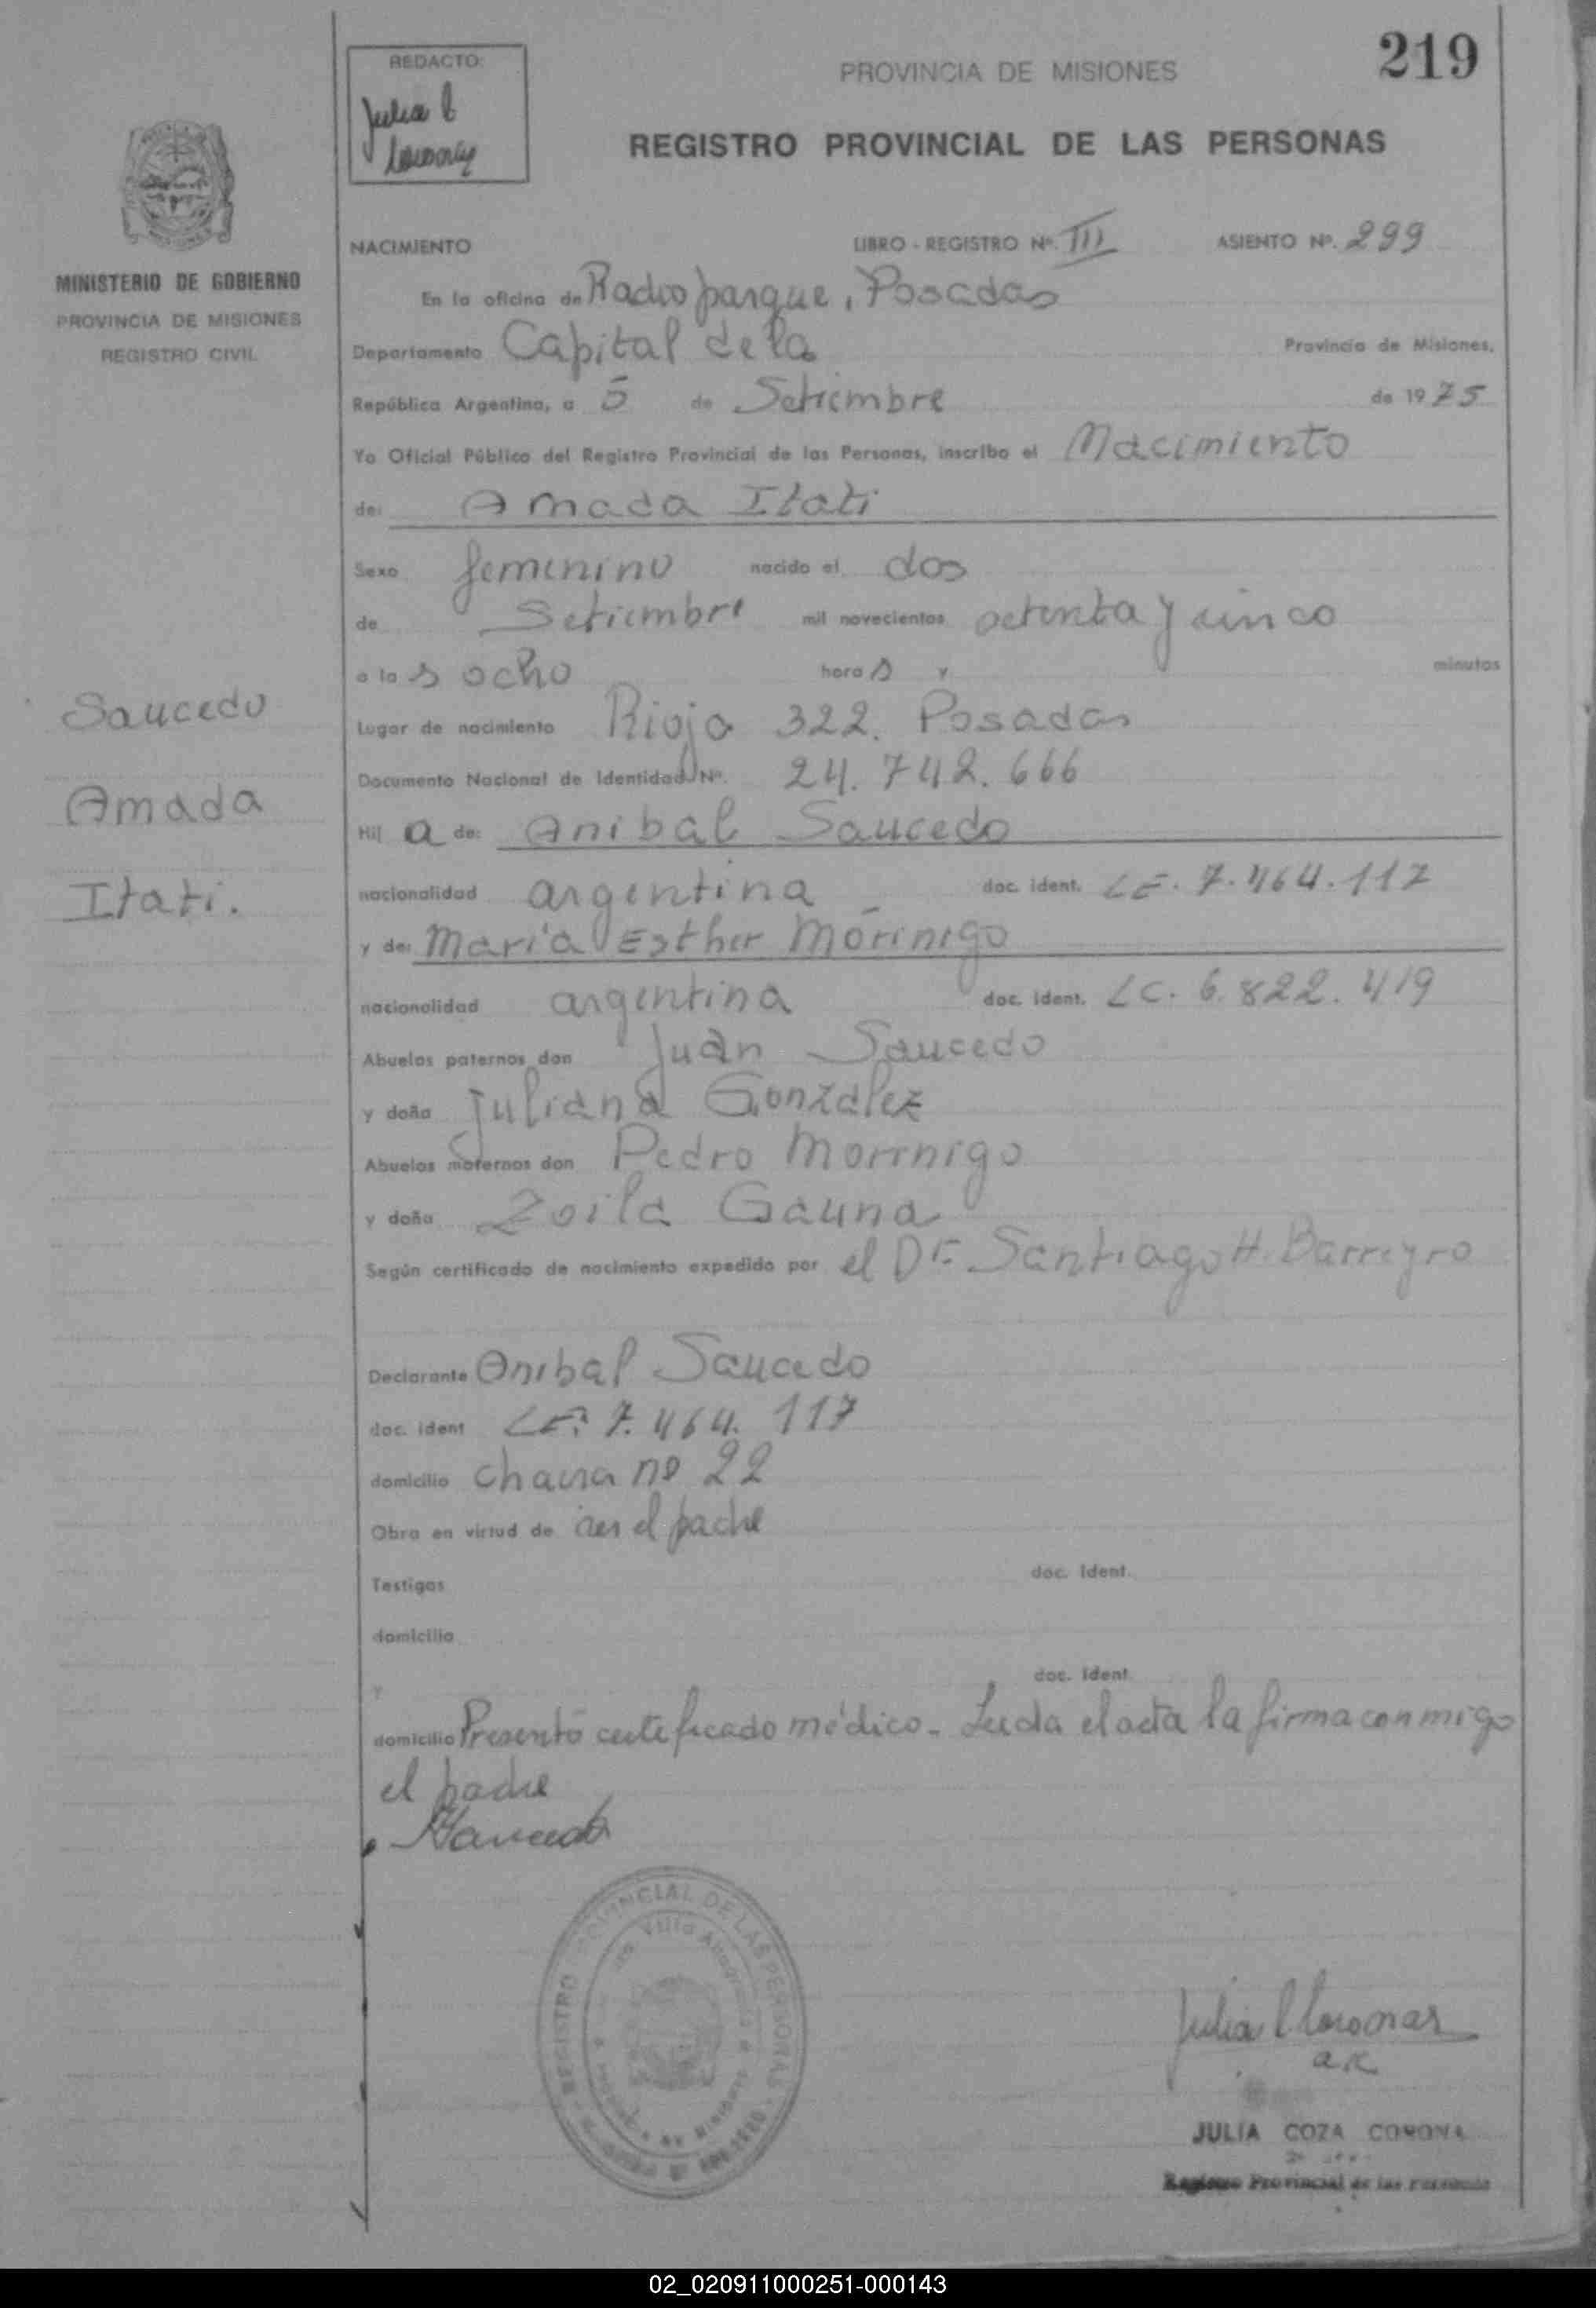 219
REDACTO:
Julia C
PROVINCIA DE MISIONES
REGISTRO PROVINCIAL DE LAS PERSONAS
MINISTERIO DE GOBIERNO
PROVINCIA DE MISIONES
REGISTRO CIVIL
NACIMIENTO LIBRO - REGISTRO Nº. III ASIENTO Nº. 299
En la oficina de Radioparque, Posadas
Departamento Capital de la Provincia de Misiones,
República Argentina, a 5 de Setiembre de 1975
Yo Oficial Público del Registro Provincial de las Personas, inscribo el Nacimiento
de: Amada Itati
Sexo femenino nacido el dos
de Setiembre mil novecientos setenta y cinco
a la s ocho hora s y minutos
Saucedo
Amada
Itati.
Lugar de nacimiento Rioja 322. Posadas
Documento Nacional de Identidad Nº. 24.742.666
Hij a de: Anibal Saucedo
nacionalidad argentina doc. ident. LE. 7.464.117
y de: María Esther Mórinigo
nacionalidad argentina doc. ident. LC. 6.822.419
Abuelos paternos don Juan Saucedo
y doña Juliana González
Abuelos maternos don Pedro Morinigo
y doña Zoila Gauna
Según certificado de nacimiento expedido por el Dr. Santiago H. Barreyro
Declarante Anibal Saucedo
doc. ident LE. 7.464.117
domicilio chacra nº 22
Obra en virtud de ser el padre
Testigos doc. ident.
domicilio
y doc. ident.
domicilio Presentó certificado médico. Leida el acta la firma conmigo
el padre
REGISTRO PROVINCIAL DE LAS PERSONAS
Villa
Misiones
Julia C
JULIA COZA CORONA
Registro Provincial de las Personas
02_020911000251-000143